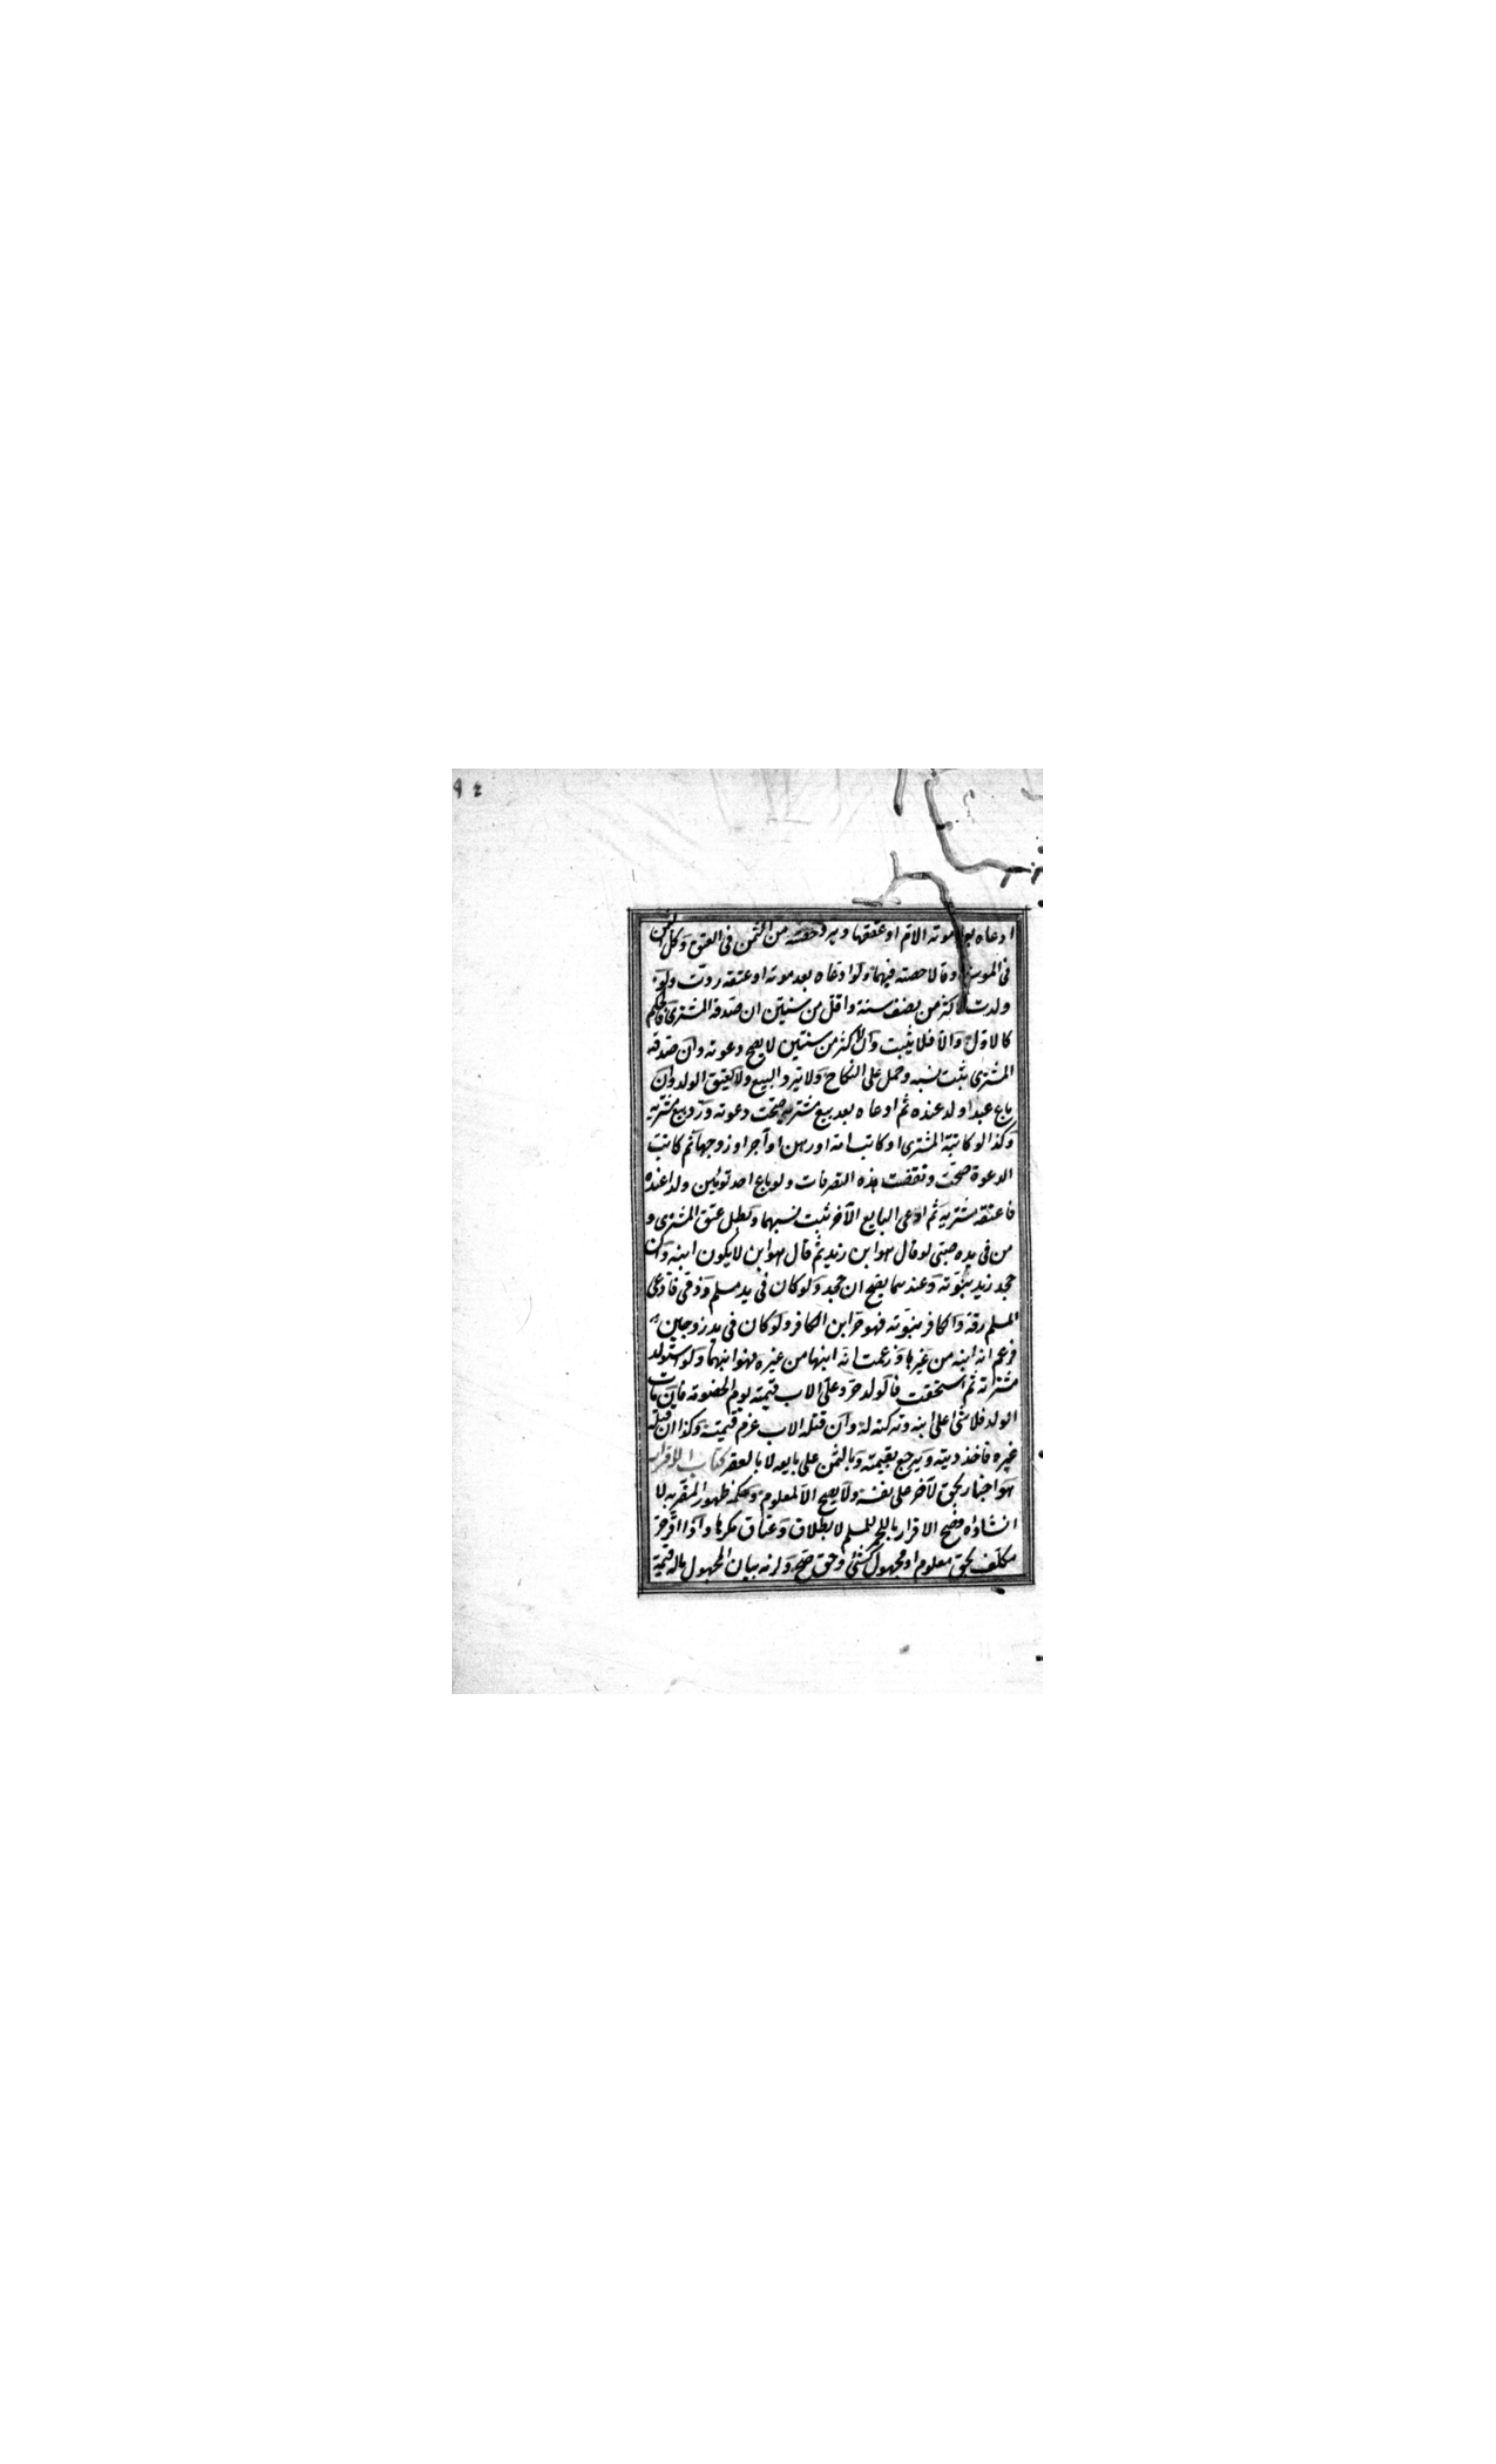 ادعاه بعد موته الام او عتقها ويرد حصته من الثمن في العتق وكل الثمن
في الموت وقالا حصته فيهما ولو ادعاه بعد موته او عتقه ردت ولو
ولدت لاكثر من نصف سنة واقل من سنتين ان صدقه المشتري فالحكم
كالاول والا فلا يثبت وان لاكثر من سنتين لا يصح دعوته وان صدقه
المشتري يثبت نسبه وحمل على النكاح ولا يرد البيع ولا يعتق الولد وان
باع عبدا ولد عنده ثم ادعاه بعد بيع مشتريه صحت دعوته ورد بيع مشتريه
وكذا لو كاتبه المشتري او كاتب امه او رهن او آجر او زوجها ثم كانت
الدعوة صحت ونقضت هذه التصرفات ولو باع احد توئمين ولدا عنده
فاعتقه مشتريه ثم ادعى البايع الآخر ثبت نسبهما وبطل عتق المشتري و
من في يده صبي لو قال هو ابن زيد ثم قال هو ابن لا يكون ابنه وان
جحد زيد بنوته وعندهما يصح ان جحد ولو كان في يد مسلم وذمي فادعى
المسلم رقه والكافر بنوته فهو حر ابن الكافر ولو كان في يد زوجين
فزعم انه ابنه من غيرها وزعمت انه ابنها من غيره فهو ابنهما ولو استولد
مشتراته ثم استحقت فالولد حر وعلى الاب قيمته يوم الخصومة فان مات
الولد فلا شئ على ابيه وتركته له وان قتله الاب غرم قيمته وكذا ان قتله
غيره فاخذ ديته ويرجع بقيمته وبالثمن على بايعه لا بالعقر كتاب الاقرار
هو اخبار بحق لآخر على نفسه ولا يصح الا لمعلوم وحكمه ظهور المقر به لا
انشاؤه فصح الاقرار بالخمر للمسلم لا بطلاق وعتاق مكرها واذا اقر حر
مكلف بحق معلوم او مجهول كشئ وحق صح ولزمه بيان المجهول بماله قيمة